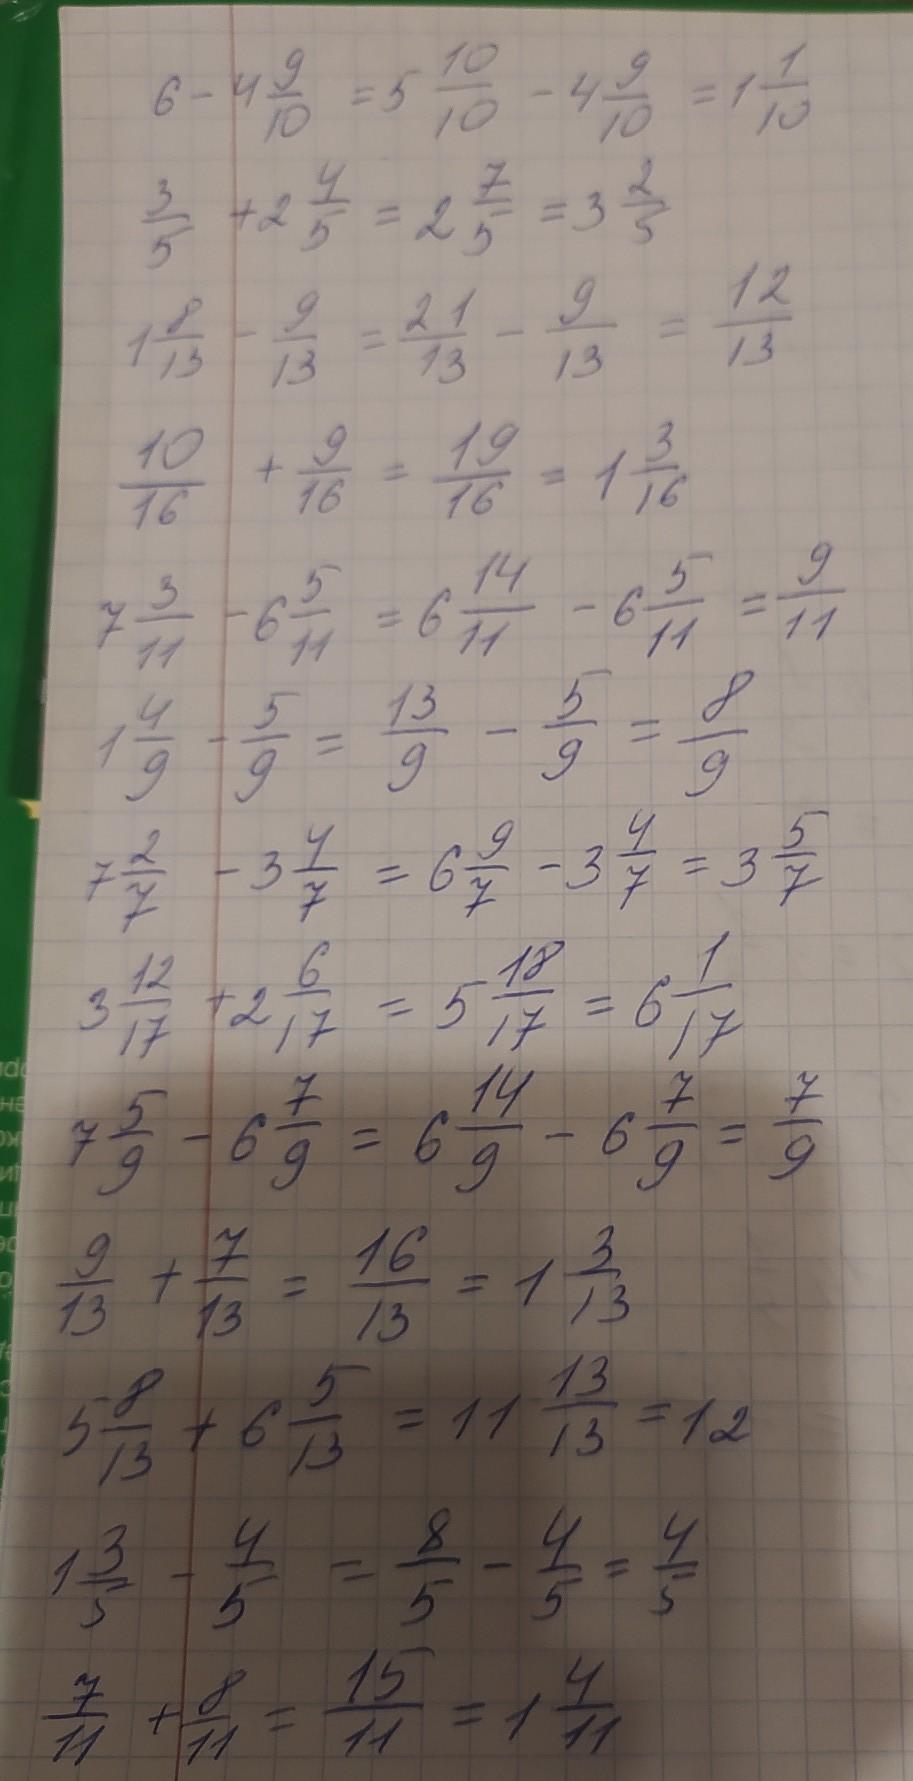 6 - 4 9/10 = 5 10/10 - 4 9/10 = 1 1/10
3/5 + 2 4/5 = 2 7/5 = 3 2/5
1 8/13 - 9/13 = 21/13 - 9/13 = 12/13
10/16 + 9/16 = 19/16 = 1 3/16
7 3/11 - 6 5/11 = 6 14/11 - 6 5/11 = 9/11
1 4/9 - 5/9 = 13/9 - 5/9 = 8/9
7 2/7 - 3 4/7 = 6 9/7 - 3 4/7 = 3 5/7
3 12/17 + 2 6/17 = 5 18/17 = 6 1/17
7 5/9 - 6 7/9 = 6 14/9 - 6 7/9 = 7/9
9/13 + 7/13 = 16/13 = 1 3/13
5 8/13 + 6 5/13 = 11 13/13 = 12
1 3/5 - 4/5 = 8/5 - 4/5 = 4/5
7/11 + 8/11 = 15/11 = 1 4/11